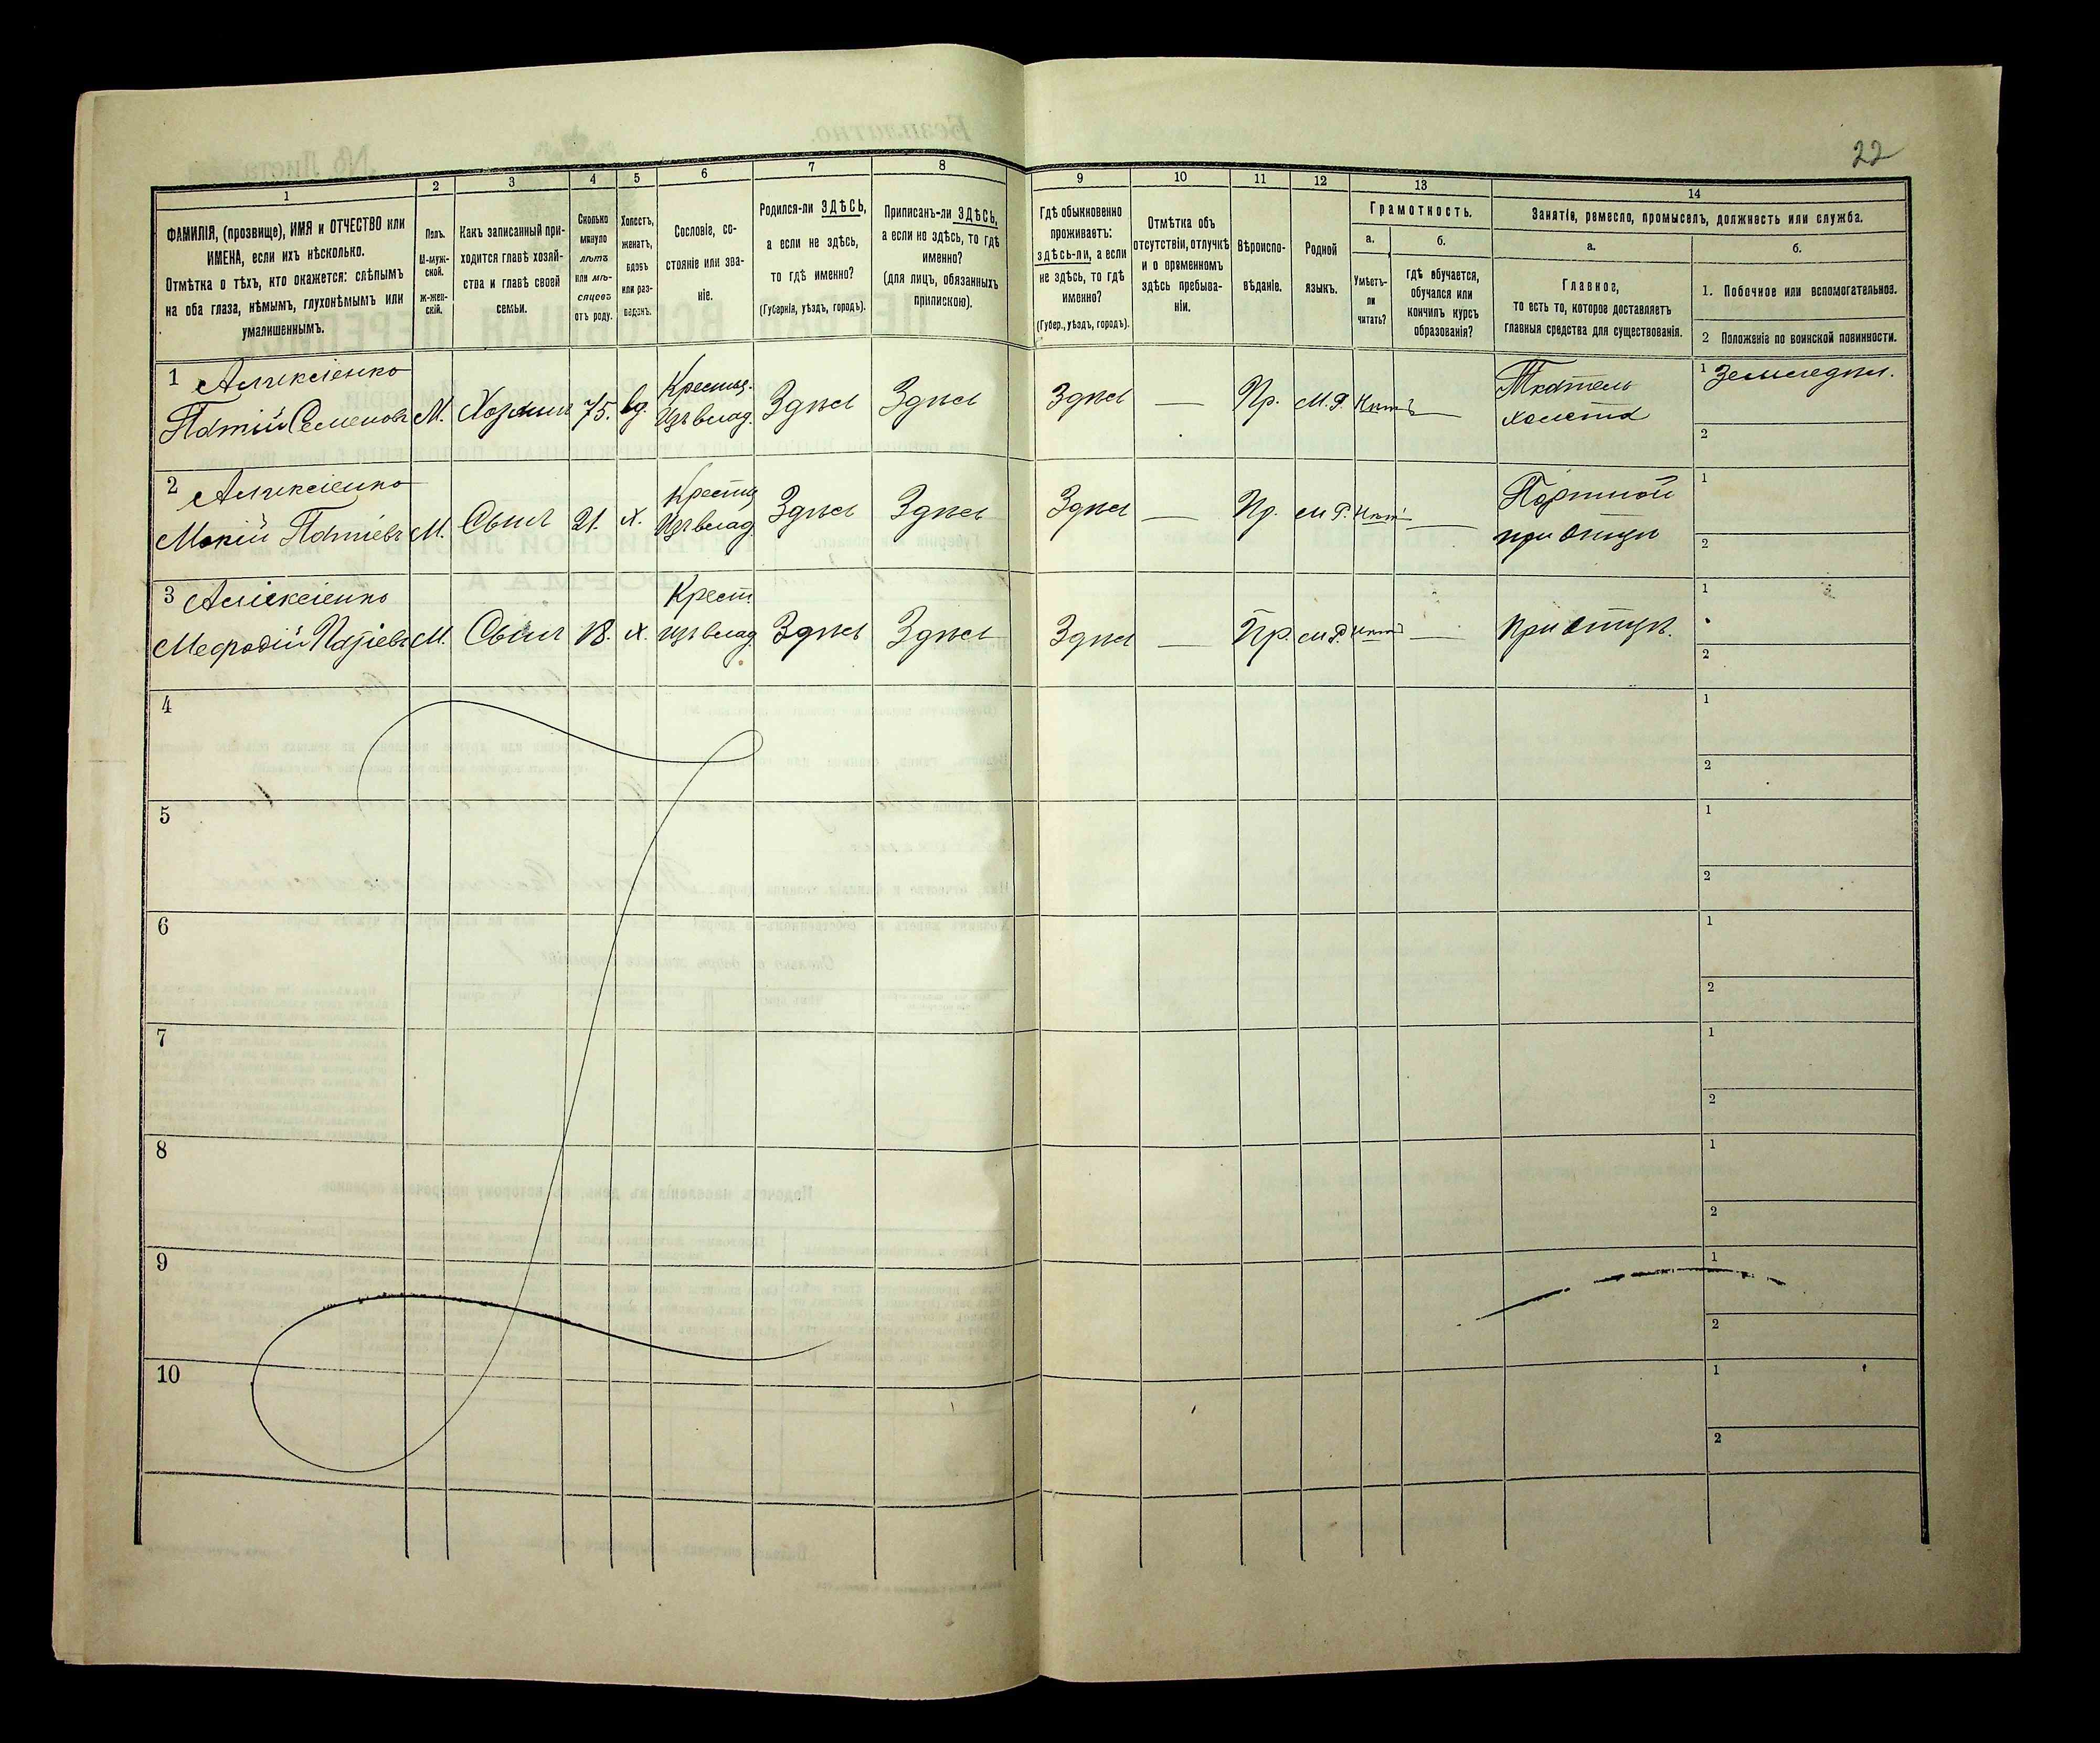 22
1
2
3
4
5
6
7
8
9
10
11
12
13
14
ФАМИЛІЯ, (прозвище), ИМЯ и ОТЧЕСТВО или
ИМЕНА, если ихъ нѣсколько.
Отмѣтка о тѣхъ, кто окажется: слѣпымъ
на оба глаза, нѣмымъ, глухонѣмымъ или
умалишеннымъ.
Полъ.
М-муж-
ской.
Ж-жен-
скій.
Какъ записанный при-
ходится главѣ хозяй-
ства и главѣ своей
семьи.
Сколько
минуло
лѣтъ
или мѣ-
сяцевъ
отъ роду.
Холостъ,
женатъ,
вдовъ
или раз-
веденъ.
Сословіе, со-
стояніе или зва-
ніе.
Родился-ли ЗДѢСЬ,
а если не здѣсь,
то гдѣ именно?
(Губернія, уѣздъ, городъ).
Приписанъ-ли ЗДѢСЬ,
а если не здѣсь, то гдѣ
именно?
(для лицъ, обязанныхъ
припискою).
Гдѣ обыкновенно
проживаетъ:
здѣсь-ли, а если
не здѣсь, то гдѣ
именно?
(Губер., уѣздъ, городъ).
Отмѣтка объ
отсутствіи, отлучкѣ
и о временномъ
здѣсь пребыва-
ніи.
Вѣроиспо-
вѣданіе.
Родной
языкъ.
Грамотность.
а.
Умѣетъ-
ли
читать?
б.
гдѣ обучается,
обучался или
кончилъ курсъ
образованія?
Занятіе, ремесло, промыселъ, должность или служба.
а.
Главное,
то есть то, которое доставляетъ
главныя средства для существованія.
б.
1. Побочное или вспомогательное.
2 Положеніе по воинской повинности.
1 Алексіенко
Семеновъ М. Хозяинъ 75. вд. Крестья. Изъ влад. Здѣсь Здѣсь Здѣсь — Пр. М.Р. Нѣтъ — холста 1 Земледѣл.
2
2 Алексіенко
Мокій М. Сынъ 21. х. Крестья Изъ влад. Здѣсь Здѣсь Здѣсь — Пр. М Р. Нѣтъ — Портной при отцѣ 1
2
3 Алексіенко
Мефодій М. Сынъ 18. х. Крест. изъ влад. Здѣсь Здѣсь Здѣсь — Пр. М Р. Нѣтъ — при отцѣ. 1
2
4 1
2
5 1
2
6 1
2
7 1
2
8 1
2
9 1
2
10 1
2